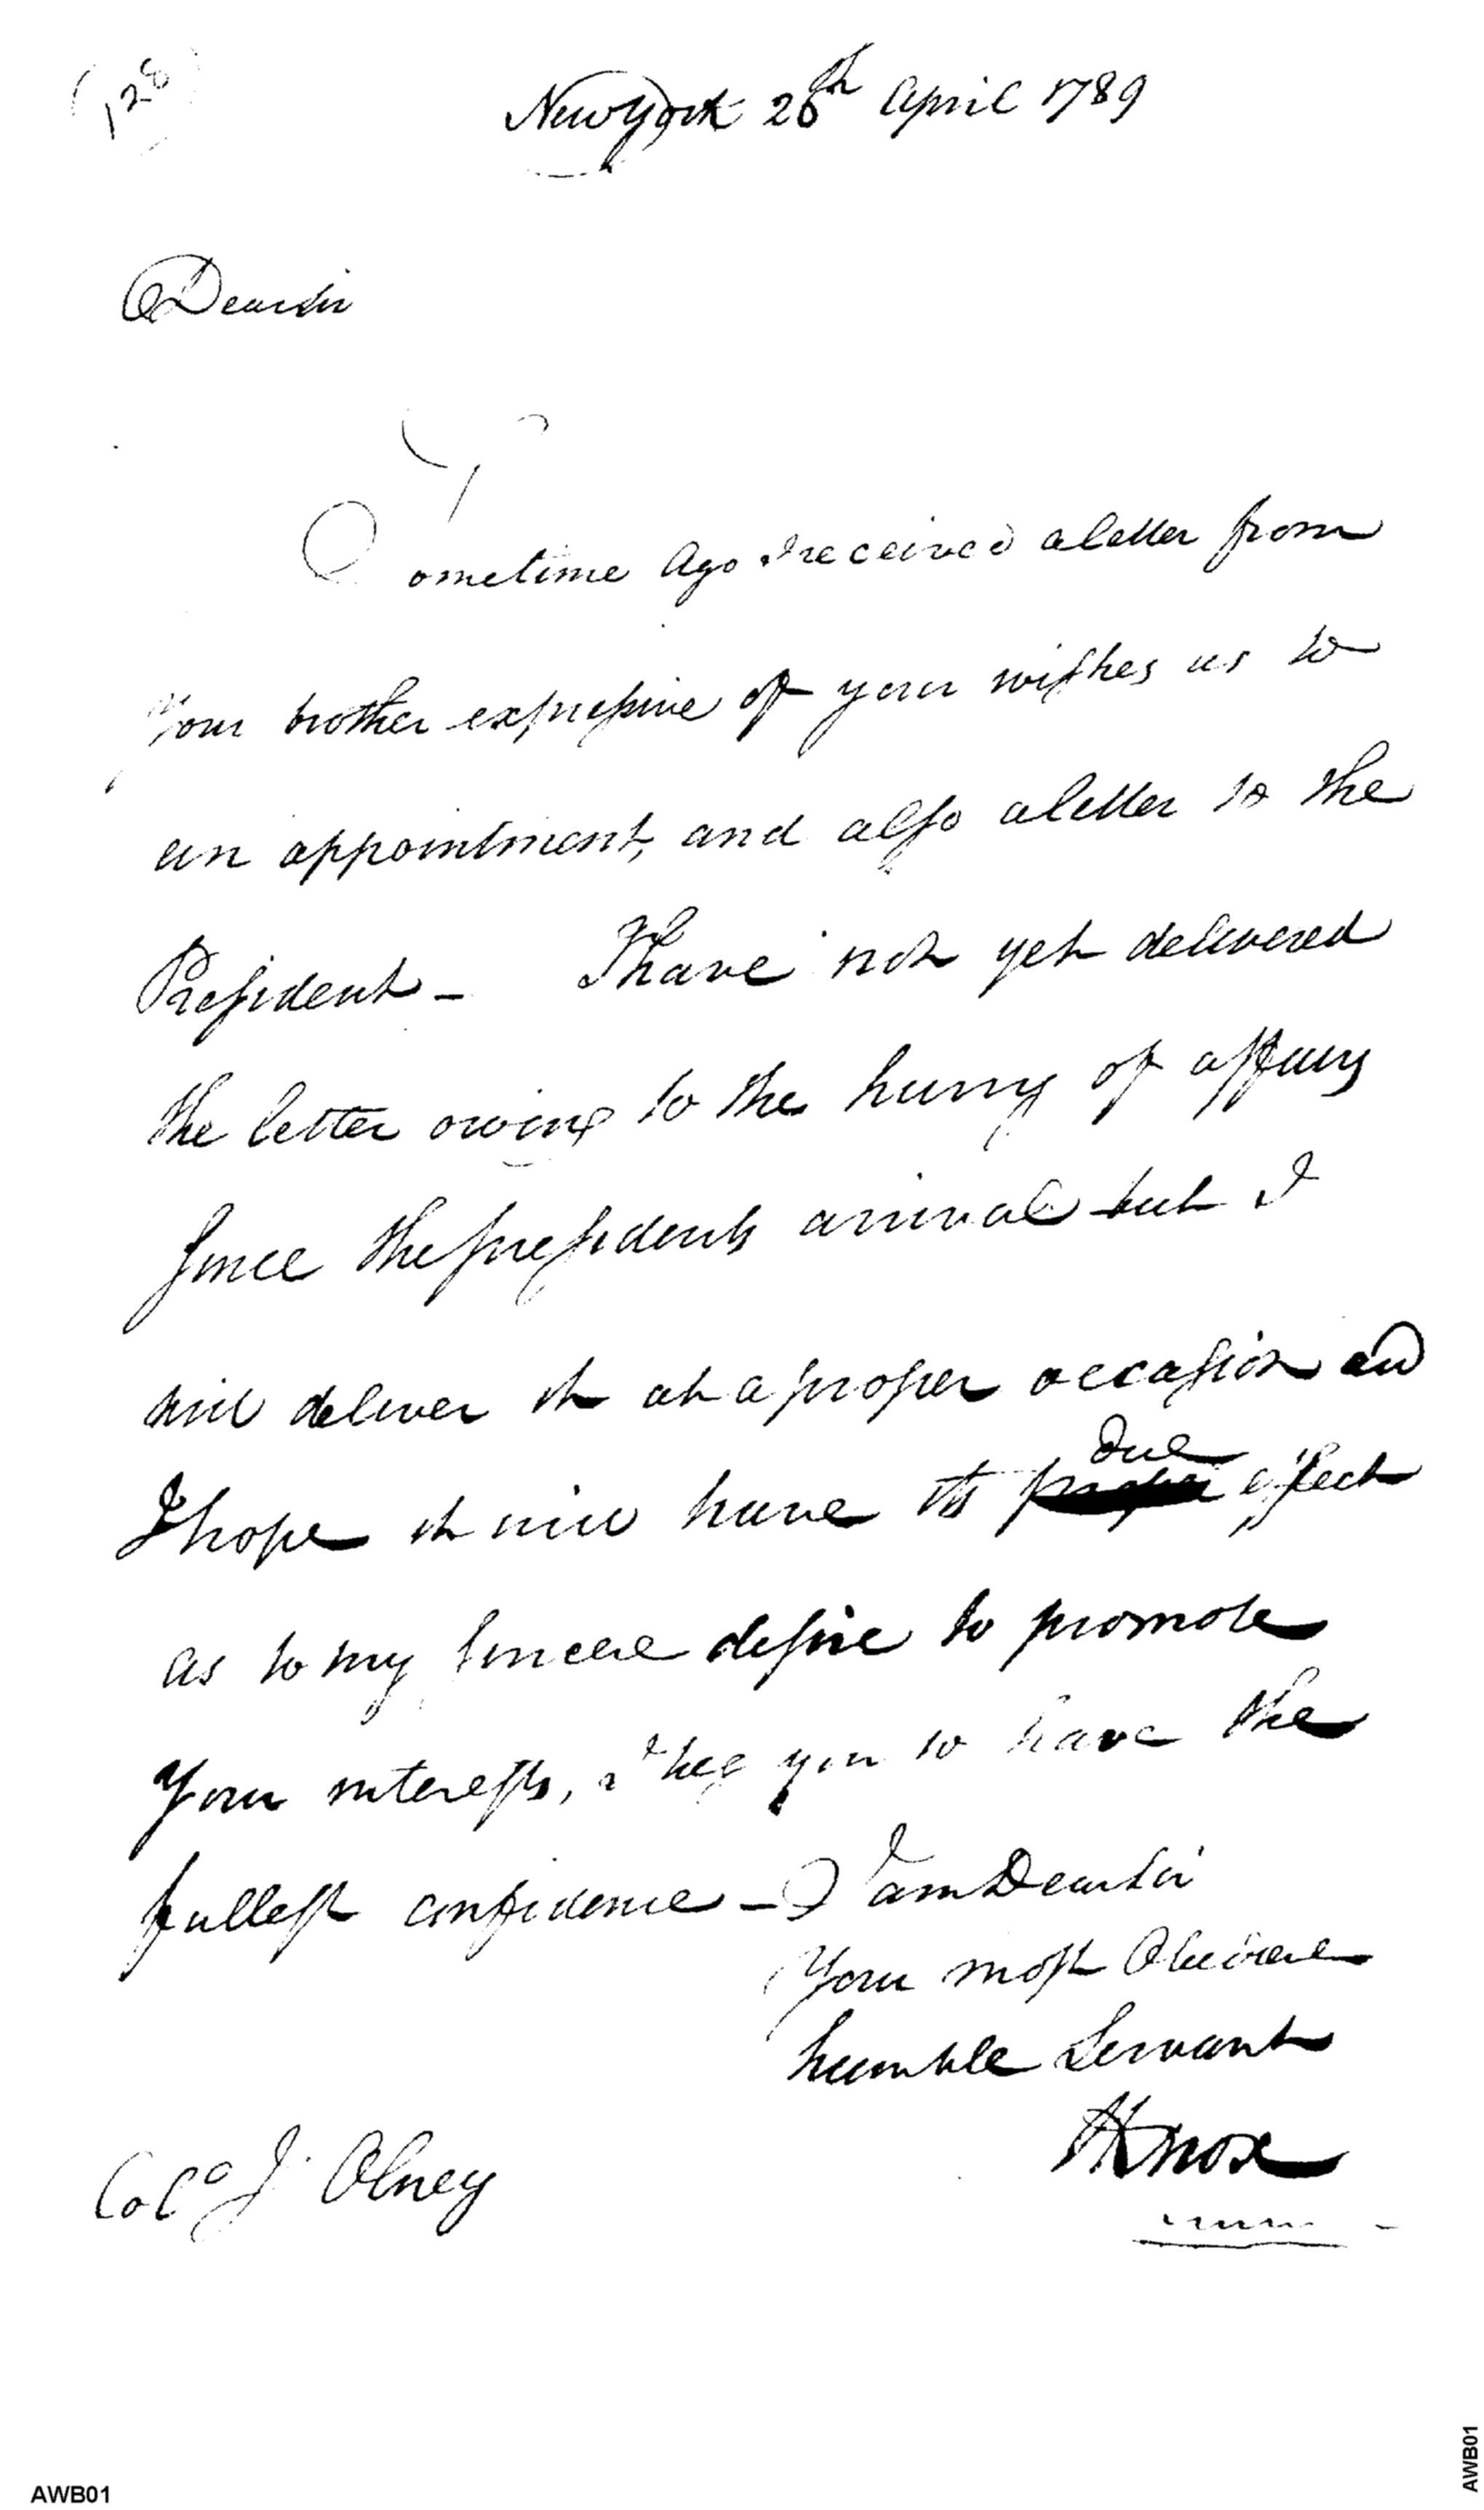 (128)
New York 28th April 1789
Dear sir
Sometime ago I received a letter from
Your brother expressive of your wishes as to
an appointment, and also a letter to the
President — I have not yet delivered
the letter owing to the hurry of affairs
since the presidents arrival but I
will deliver it at a proper occasion and
I hope it will have its due effect
as to my sincere desire to promote
Your interests, I beg you to have the
fullest confidence — I am Dear sir
Your most Obedient
humble Servant
HKnox
Colo J. Olney
AWB01
AWB01